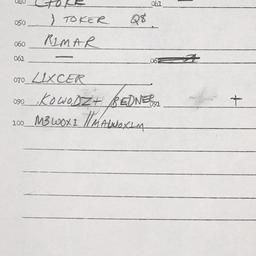 050 ) TOKER Q8.
060 RIMAR
061 —
070 LIXCER
090 .KOWODZ+/REDNER 091 +
100 M3WOXI // MAWOXIM